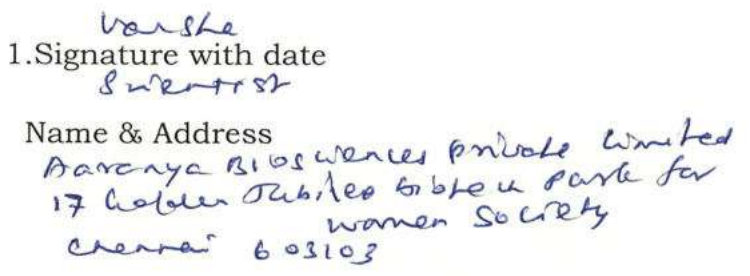 Varsha
1.Signature with date
Scientist
Name & Address
Aaranya Biosciences private Limited
17 Golden Jubilee biotech park for
women society
chennai 603103